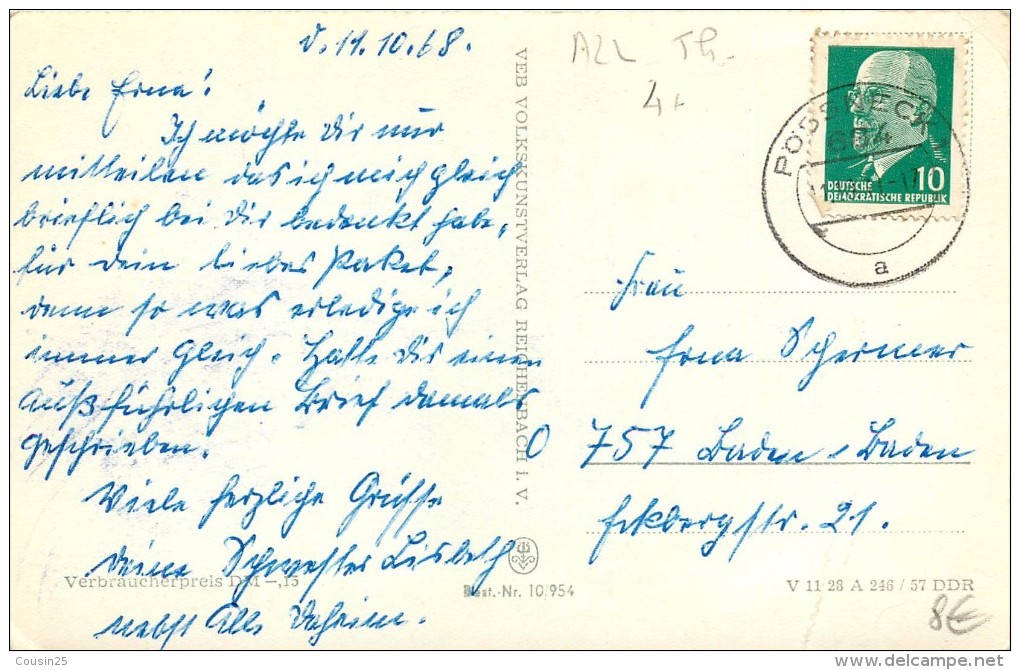 d. 11.10.68.
Liebe Erna!
Ich möchte Dir nur
mitteilen das ich mich gleich
brieflich bei Dir bedankt habe,
für dein liebes Paket,
denn so was erledige ich
immer gleich. Hatte Dir einen
außführlichen Brief damals
geschrieben.
Viele herzliche Grüsse
deine Schwester Lisbeth
nebst Alle Daheim.
Verbraucherpreis DM -,15
VEB VOLKSKUNSTVERLAG REICHENBACH I. V.
Best.-Nr. 10/954
AZL Th-
4+
PÖSSNECK
a
10
DEUTSCHE
DEMOKRATISCHE REPUBLIK
Frau
Erna Schermer
757 Baden-Baden
Eckbergstr. 21.
V 11 28 A 246 / 57 DDR
8€
Cousin25
delcampe.net